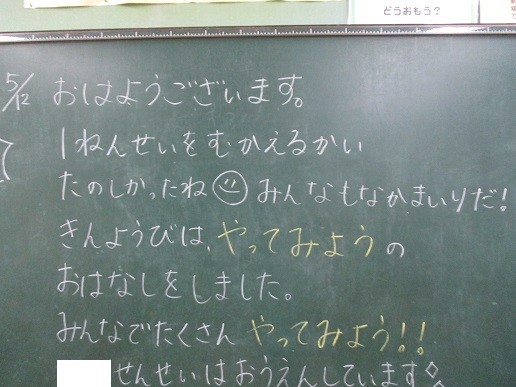 どうおもう?
5/12 おはようございます。
1ねんせいをむかえるかい
たのしかったね みんなもなかまいりだ!
きんようびは、やってみようの
おはなしをしました。
みんなでたくさん やってみよう!!
せんせいはおうえんしています◇